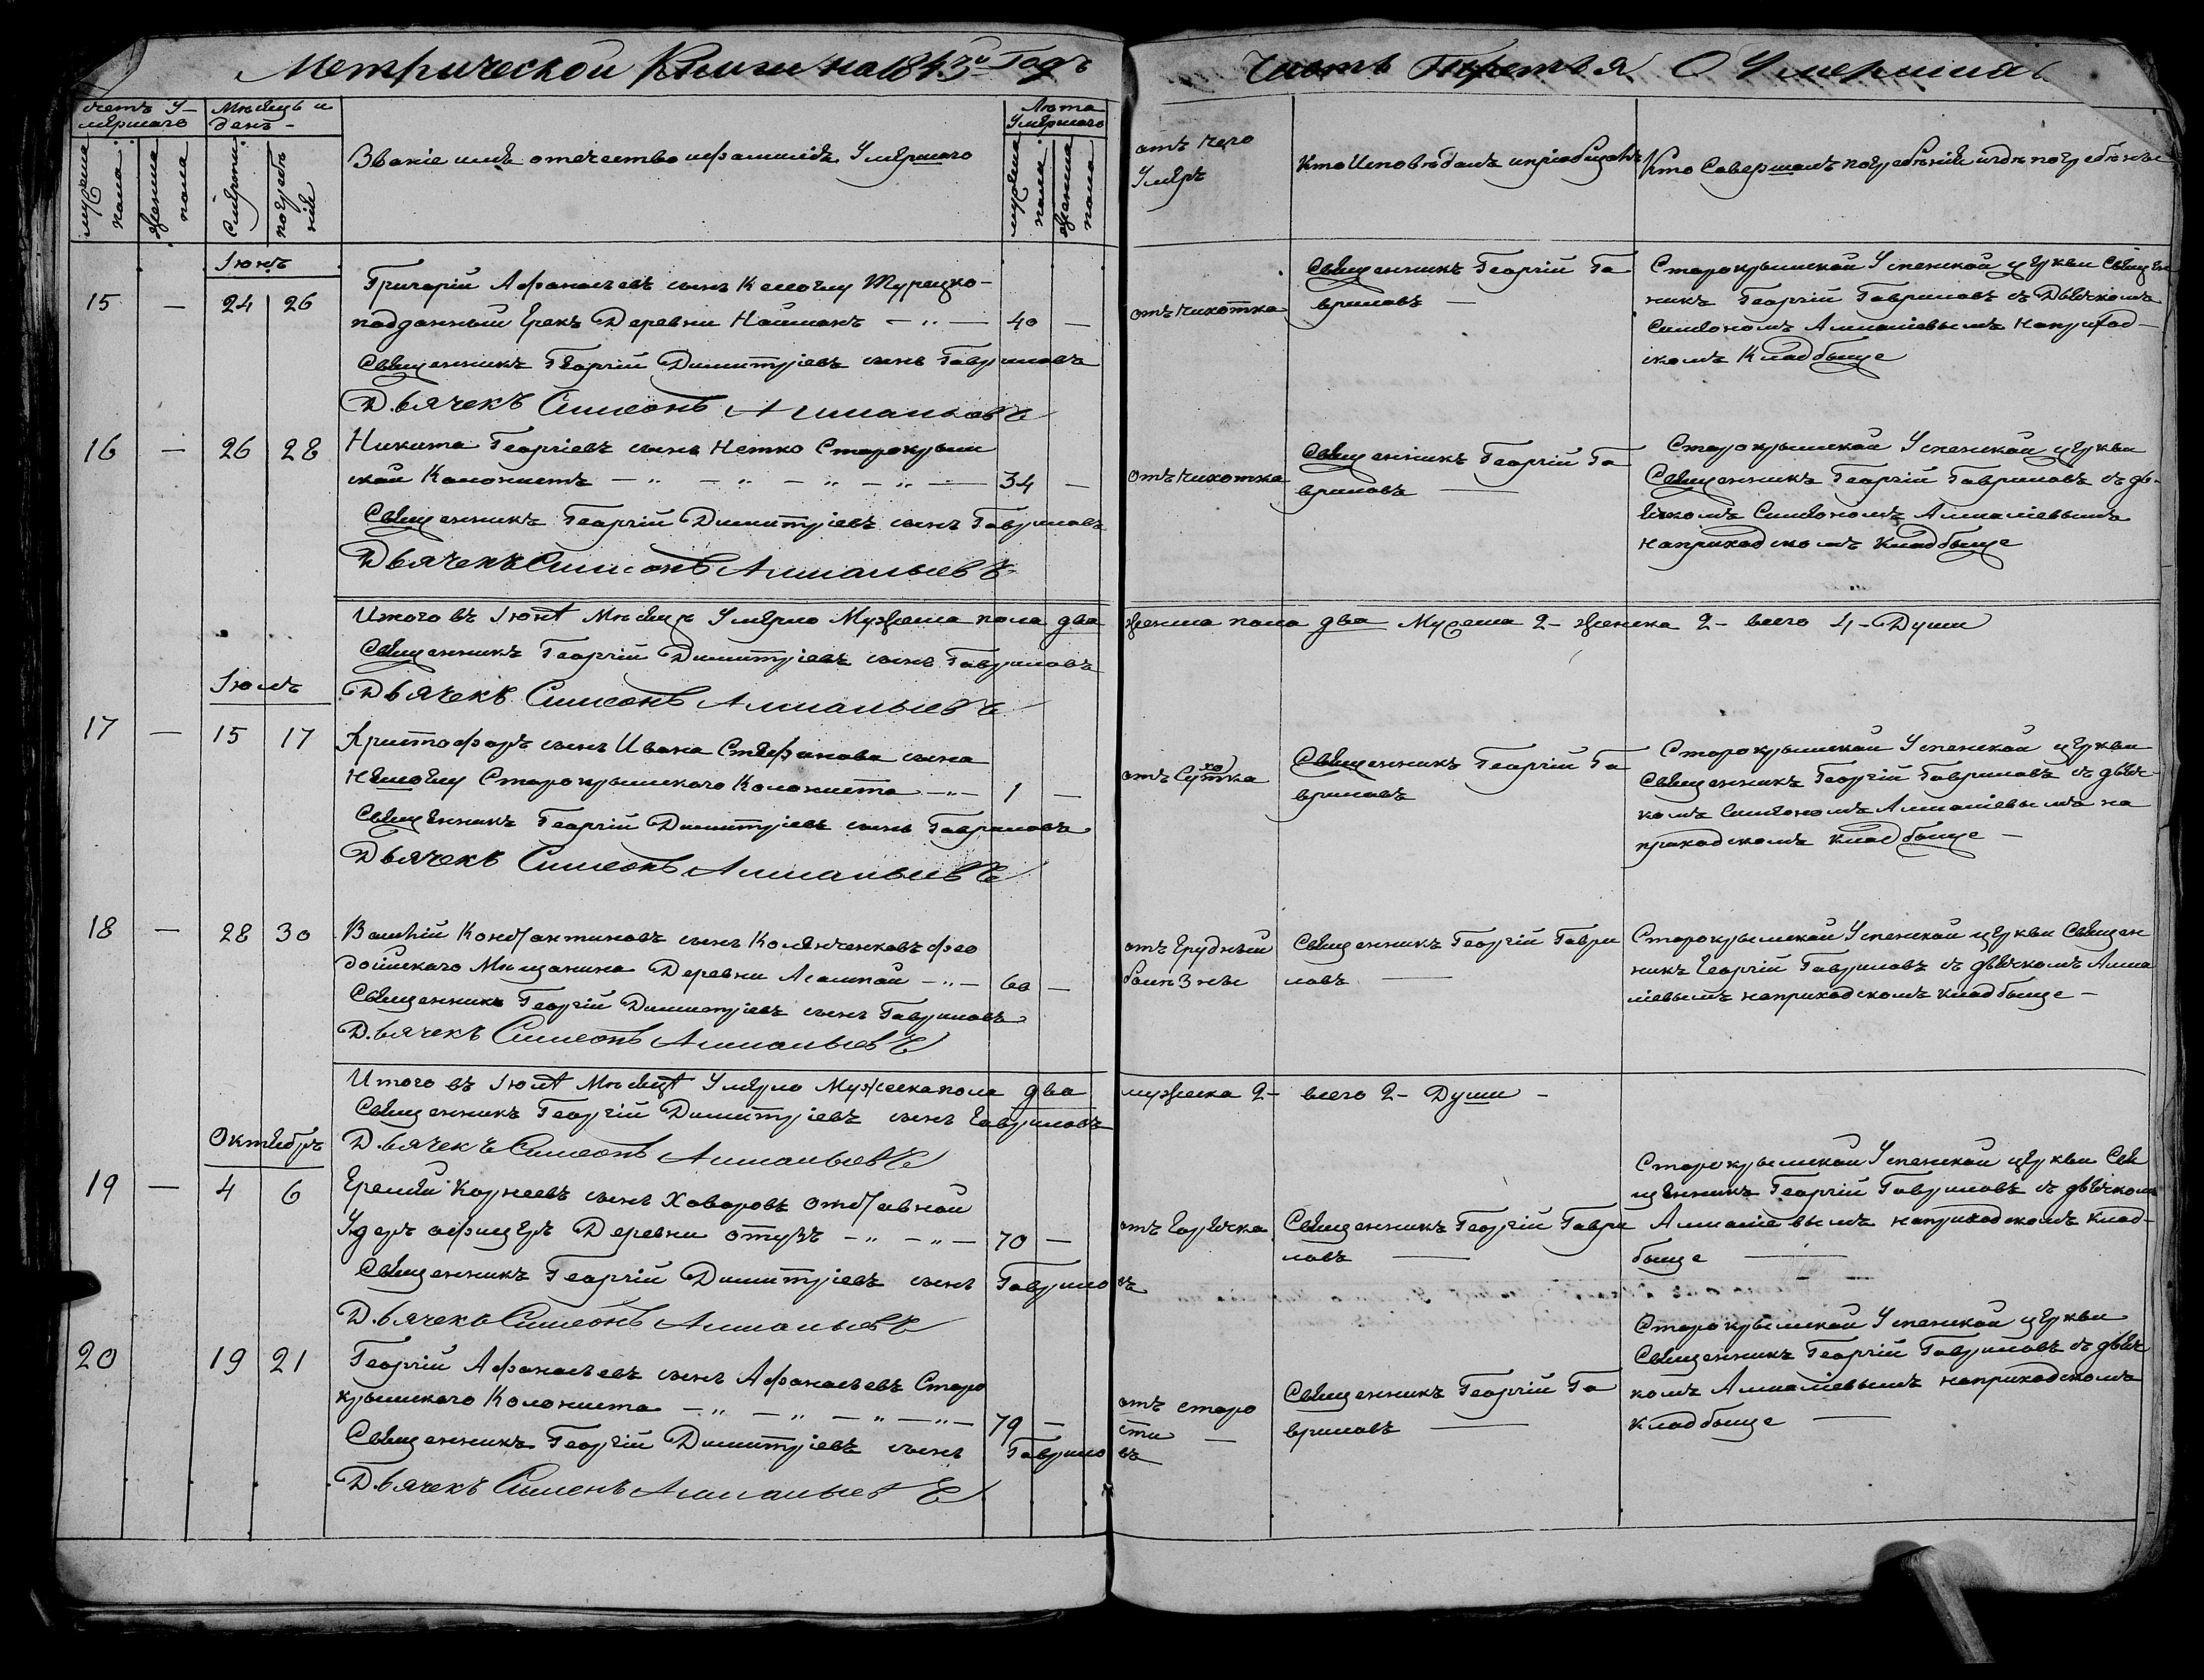 Метрической Книги на 1843го Годъ
Часть Третья О Умершихъ
счетъ У-
мершаго
Мѣсяцъ и
день -
Звание имя отечество и фамилія Умершаго
Лѣта
Умершаго
мужеска
пола
женска
пола
смерти
погребе
нія
мужеска
пола
женска
пола
отъ чего
Умеръ
Кто Исповѣдалъ и пріобщалъ
Кто Совершалъ погребеніе и где погребены
Іюнь
15 — 24 26
Григорій Афанасьевъ сынъ Турецко-
подданный Грекъ Деревни Найманъ — „ — 40 —
Священникъ Георгій Димитріевъ сынъ Гавриловъ
Дьячекъ Симеонъ
отъ чихотка
Священникъ Георгій Га
вриловъ —
Старокрымской Успенской церкви Священ
никъ Георгій Гавриловъ съ Дьячкомъ
Симеономъ на приход-
скомъ Кладбище
16 — 26 28
Никита Георгіевъ сынъ Нетко Старокрым
ской Колонистъ — „ — „ — „ — „ — 34 —
Священникъ Георгій Димитріевъ сынъ Гавриловъ
Дьячекъ Симеонъ
отъ чихотка
Священникъ Георгій Га
вриловъ —
Старокрымской Успенской церкви
Священникъ Георгій Гавриловъ съ дь-
ячкомъ Симеономъ
на приходскомъ кладбище
Итого въ Іюнѣ Мѣсяцѣ Умерло Мужеска пола два
женска пола два Мужеска 2- женска 2- всего 4- Души
Священникъ Георгій Димитріевъ сынъ Гавриловъ
Дьячекъ Симеонъ
Іюль
17 — 15 17
Христофоръ сынъ Ивана Стефанова сына
Старокрымскаго Колониста — „ — 1 —
Священникъ Георгій Димитріевъ сынъ Гавриловъ
Дьячекъ Симеонъ
отъ Сухотка
Священникъ Георгій Га
вриловъ
Старокрымской Успенской церкви
Священникъ Георгій Гавриловъ съ дьяч
комъ Симеономъ на
приходскомъ кладбище —
18 — 28 30
Василій Константиновъ сынъ Фео
досійскаго Мѣщанина Деревни — „ — 60 —
Священникъ Георгій Димитріевъ сынъ Гавриловъ
Дьячекъ Симеонъ
отъ Грудный
болѣзны
Священникъ Георгій Гаври
ловъ —
Старокрымской Успенской церкви Священ
никъ Георгій Гавриловъ съ дьячкомъ
на приходскомъ кладбище —
Итого въ Іюлѣ Мѣсяцѣ Умерло Мужеска пола два
мужеска 2- всего 2- Души -
Священникъ Георгій Димитріевъ сынъ Гавриловъ
Дьячекъ Симеонъ
Октябрь
19 — 4 6
Еремѣй Корнеевъ сынъ Ховоровъ Отставной
Ундеръ офицеръ Деревни Отузъ — „ — „ — 70 —
Священникъ Георгій Димитріевъ сынъ Гаврило въ
Дьячекъ Симеонъ
отъ Горячка
Священникъ Георгій Гаври
ловъ —
Старокрымской Успенской церкви Свя
щенникъ Георгій Гавриловъ съ дьячкомъ
на приходскомъ Клад-
бище —
20 19 21
Георгій Афанасьевъ сынъ Афанасьевъ Старо
крымскаго Колониста — „ — „ — „ — „ — 79 —
Священникъ Георгій Димитріевъ сынъ Гаврило въ
Дьячекъ Симеонъ
отъ старо
сти —
Священникъ Георгій Га
вриловъ —
Старокрымской Успенской церкви
Священникъ Георгій Гавриловъ съ дьяч
комъ на приходскомъ
кладбище —